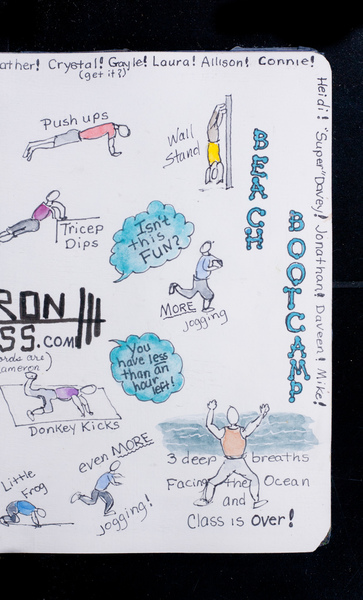 ather! Crystal! Gayle! Laura! Allison! Connie!
(get it?)
Heidi! "Super" Davey! Jonathan! Daveen! Mike!
Push ups
Wall
Stand
BEACH
BOOTCAMP
Tricep
Dips
Isn't
this
FUN?
MORE
jogging
RON
SS.COM
ords are)
ameron)
You
have less
than an
hour
left!
Donkey Kicks
even MORE
jogging!
Little
Frog
3 deep breaths
Facing the Ocean
and
Class is over!